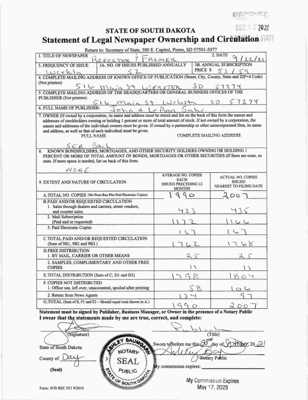 RECEIVED
STATE OF SOUTH DAKOTA
Statement of Legal Newspaper Ownership and Circulation
Return to: Secretary of State, 500 E. Capitol, Pierre, SD 57501-5077
1. TITLE OF NEWSPAPER 2. DATE
Reporter & Farmer
3. FREQUENCY OF ISSUE 3A. NO. OF ISSUES PUBLISHED ANNUALLY 3B. ANNUAL SUBSCRIPTION PRICE $
Weekly 52
4. COMPLETE MAILING ADDRESS OF KNOWN OFFICE OF PUBLICATION (Street, City, County, State and ZIP+4 Code) (Not printers)
516 Main St Webster SD 57274
5. COMPLETE MAILING ADDRESS OF THE HEADQUARTERS OR GENERAL BUSINESS OFFICE OF THE PUBLISHER (Not printers)
516 Main St Webster SD 57274
6. FULL NAME OF PUBLISHER:
7. OWNER (If owned by a corporation, its name and address must be stated and list on the back of this form the names and
addresses of stockholders owning or holding 1 percent or more of total amount of stock. If not owned by a corporation, the
names and addresses of the individual owners must be given. If owned by a partnership or other unincorporated firm, its name
and address, as well as that of each individual must be given.
FULL NAME COMPLETE MAILING ADDRESS
See Back
8. KNOWN BONDHOLDERS, MORTGAGEES, AND OTHER SECURITY HOLDERS OWNING OR HOLDING 1
PERCENT OR MORE OF TOTAL AMOUNT OF BONDS, MORTGAGES OR OTHER SECURITIES (If there are none, so
state. If more space is needed, list on back of this form.
None
9. EXTENT AND NATURE OF CIRCULATION AVERAGE NO. COPIES EACH ISSUES PRECEDING 12 MONTHS ACTUAL NO. COPIES ISSUED NEAREST TO FILING DATE
A. TOTAL NO. COPIES 1990 2007
B. PAID AND/OR REQUESTED CIRCULATION
1. Sales through dealers and carriers, street vendors,
and counter sales. 423 435
2. Mail Subscription
(Paid and or requested) 1172 1166
3. Paid Electronic Copies 167 167
C. TOTAL PAID AND/OR REQUESTED CIRCULATION
(Sum of 9B1, 9B2 and 9B3.) 1762 1768
D. FREE DISTRIBUTION
1. BY MAIL, CARRIER OR OTHER MEANS 25 25
2. SAMPLES, COMPLIMENTARY AND OTHER FREE COPIES 11 11
E. TOTAL DISTRIBUTION (Sum of C, D1 and D2) 1798 1804
F. COPIES NOT DISTRIBUTED
1. Office use, left over, unaccounted, spoiled after printing 58 106
2. Return from News Agents 134 97
G. TOTAL (Sum of E, F1 and F2 - Should equal total shown in A.) 1990 2007
Statement must be signed by Publisher, Business Manager, or Owner in the presence of a Notary Public
I swear that the statements made by me are true, correct, and complete:
(Signature) (Title)
State of South Dakota Sworn to before me this
County of Day Notary Public
(Seal) My commission expires
Form: SOS REC 051 9/2018
NOTARY
SEAL
PUBLIC
SOUTH DAKOTA
My Commission Expires
May 17, 2023